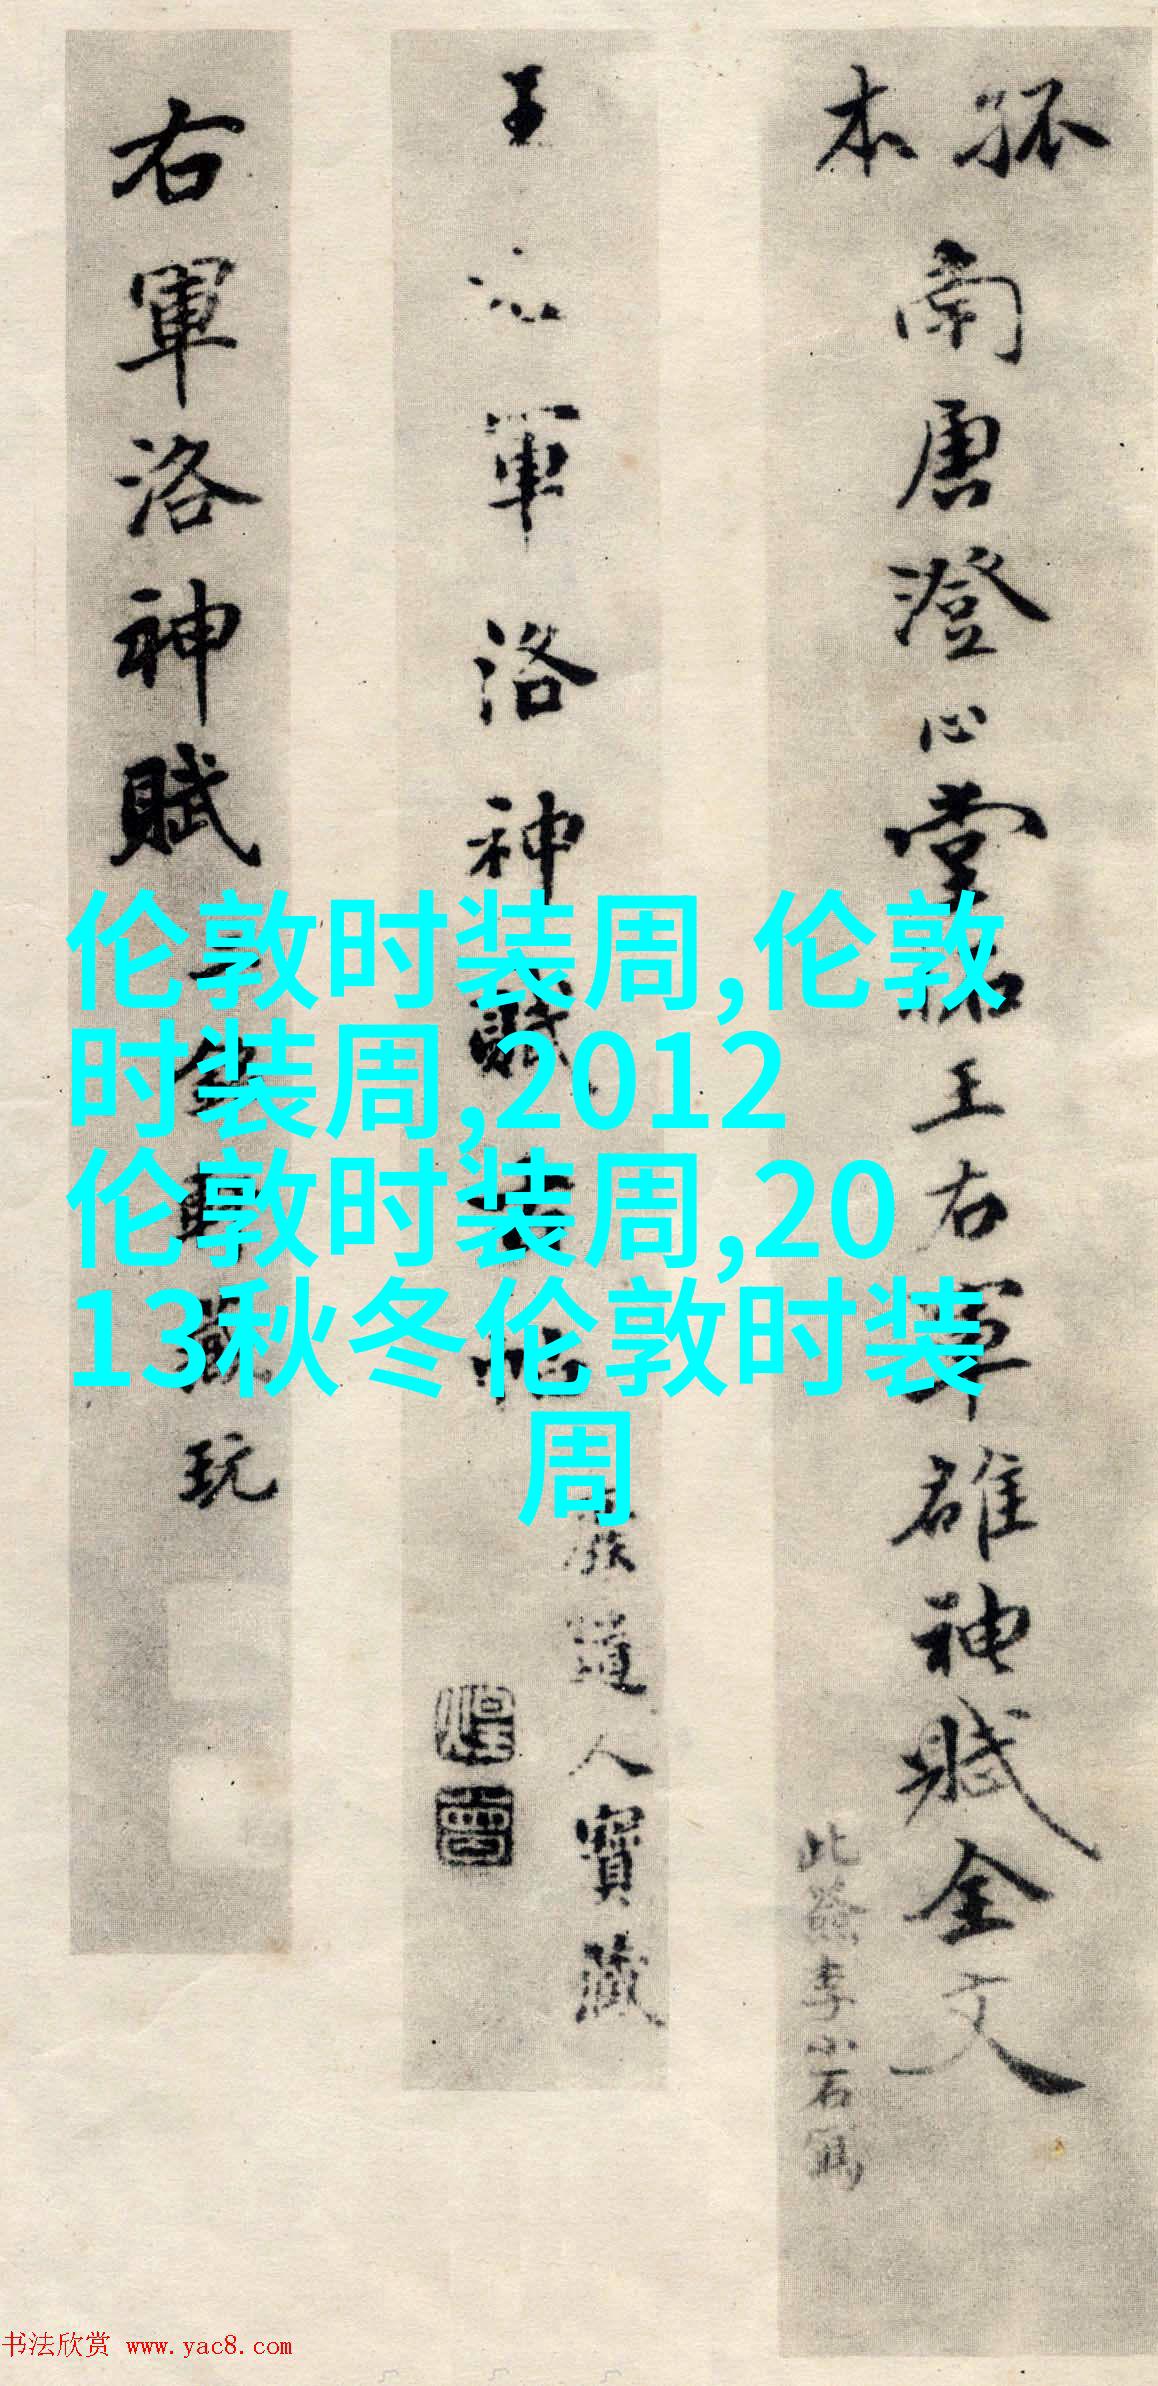 孤本
南唐澄心堂拓王右軍雒神賦全文
此籤李小石寫
王 軍洛神賦
道人寶藏
右軍洛神賦
藏玩
伦敦时装周,伦敦
时装周,2012
伦敦时装周,20
13秋冬伦敦时装
周
书法欣赏 www.yac8.com